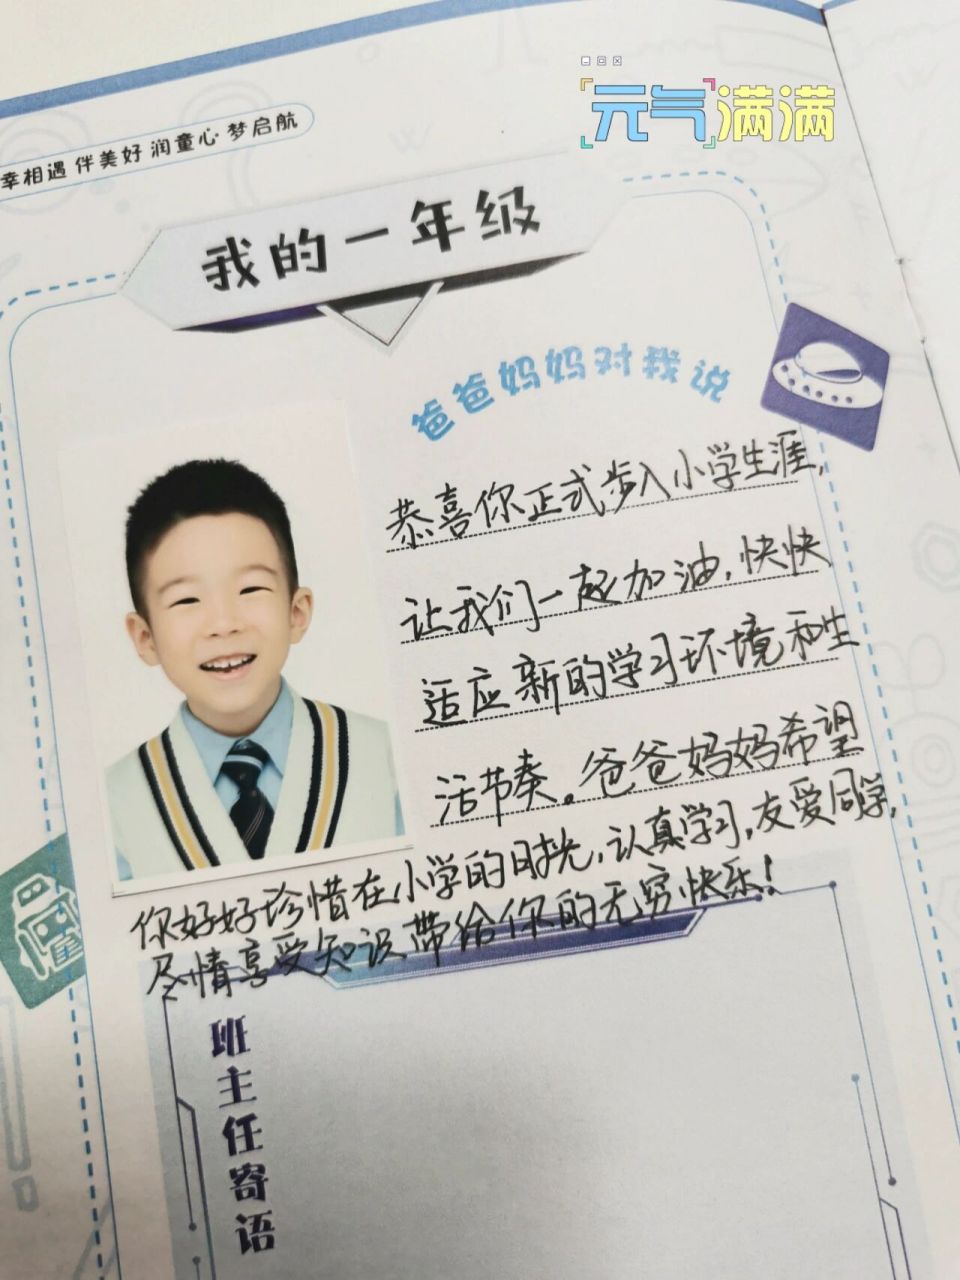 元气满满
幸相遇 伴美好 润童心·梦启航
我的一年级
爸爸妈妈对我说
恭喜你正式步入小学生涯,
让我们一起加油,快快
适应新的学习环境和生
活节奏。爸爸妈妈希望
你好好珍惜在小学的时光,认真学习,友爱同学,
尽情享受知识带给你的无穷快乐!
班主任寄语